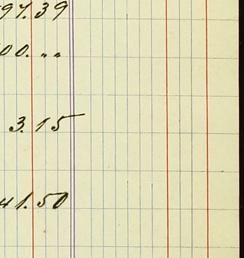 97.39
00. „ „
3.15
41.50